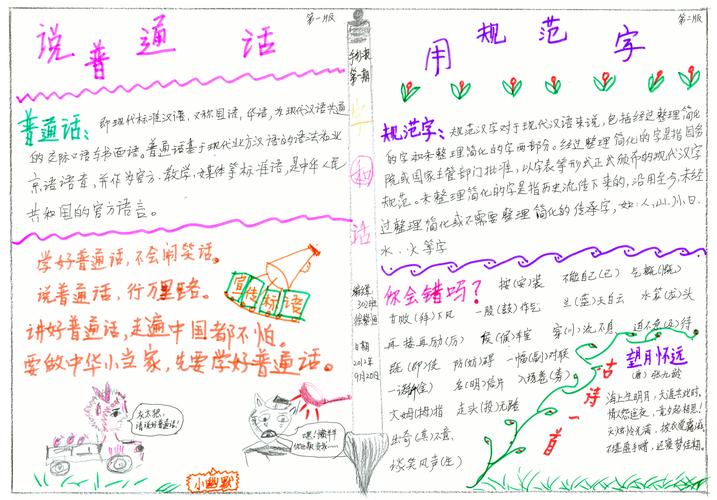 第一版
说普通话
普通话：即现代标准汉语，又称国语，华语，为现代汉语共通
的交际口语与书面语。普通话基于现代北方汉语的语法和北
京语语音，并作为官方、教学、媒体等标准语，是中华人民
共和国的官方语言。
学好普通话，不会闹笑话。
说普通话，行万里路。
讲好普通话，走遍中国都不怕。
要做中华小当家，先要学好普通话。
宣传标语
请说好普通话!
小幽默
手抄报
第一期
字和话
302班
日期
2012年
9月20日
第二版
用规范字
规范字：规范汉字对于现代汉语来说，包括经过整理简化
的字和未整理简化的字两部份。经过整理简化的字是指国务
院或国家主管部门批准，以字表等形式正式颁布的现代汉字
规范。未整理简化的字是指历史流传下来的，沿用至今，未经
过整理简化或不需要整理简化的传承字，如：人、山、川、日、
水、火等字
你会错吗?
甘败(拜)下风
再接再励(厉)
既(即)使
大姆(拇)指
出奇(其)不意
谈笑风声(生)
一股(鼓)作气
候(侯)车室
防(妨)碍
名(明)信片
走头(投)无路
按(安)装
兰(蓝)天白云
川流不息
一幅(副)对联
入场卷(券)
不能自己(已)
水笼(龙)头
迫不急(及)待
古诗一首
望月怀远
(唐)张九龄
海上生明月，天涯共此时。
情人怨遥夜，竟夕起相思!
灭烛怜光满，披衣觉露滋。
不堪盈手赠，还寝梦佳期。